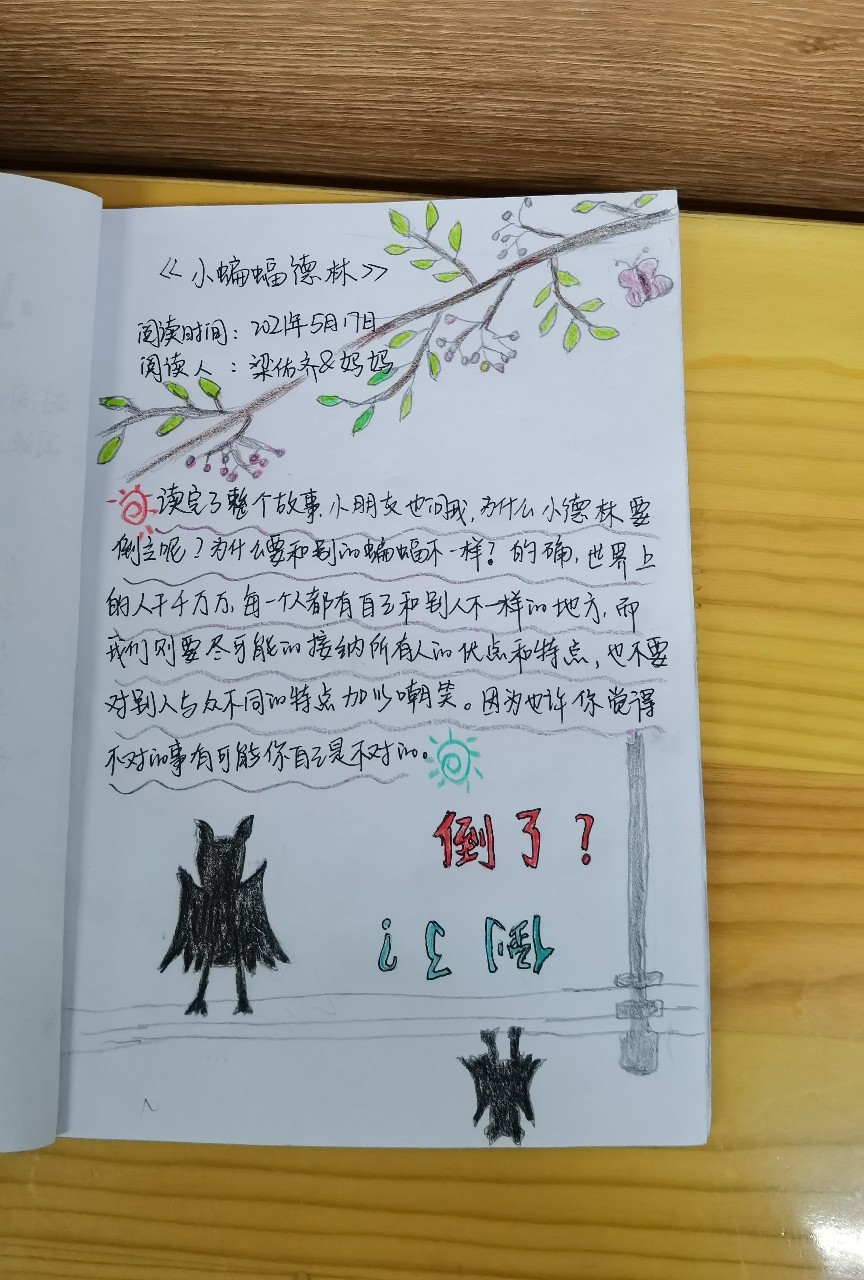 《小蝙蝠德林》
阅读时间：2021年5月17日
阅读人：梁佑齐&妈妈
读完了整个故事，小朋友也问我，为什么小德林要
倒立呢？为什么要和别的蝙蝠不一样？的确，世界上
的人千千万万，每一个人都有自己和别人不一样的地方，而
我们则要尽可能的接纳所有人的优点和特点，也不要
对别人与众不同的特点加以嘲笑。因为也许你觉得
不对的事有可能你自己是不对的。
倒了？
倒了？